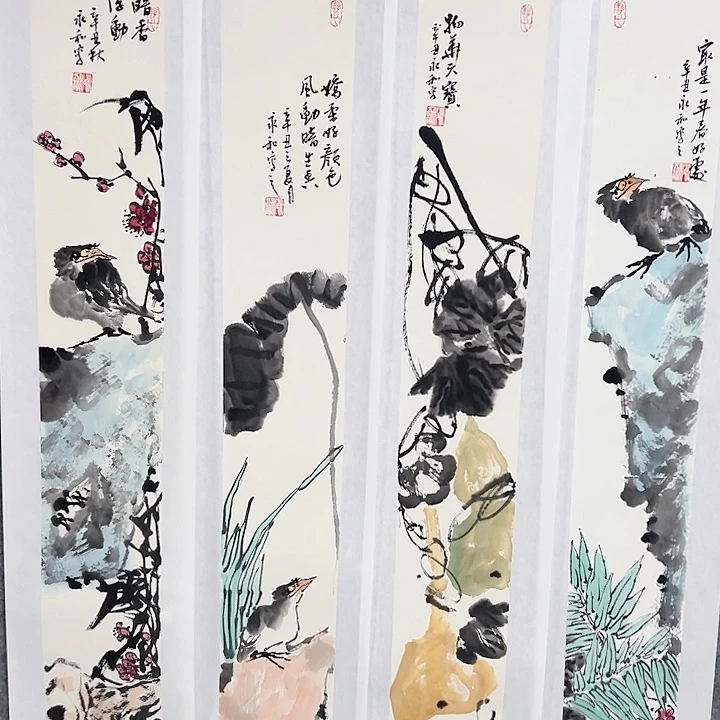 最是一年春好處
辛丑永和寫之
物華天寶
辛丑永和寫
嬌好顏色
風動暗生香
辛丑之夏月
永和寫之
暗香
浮動
辛丑秋
永和寫